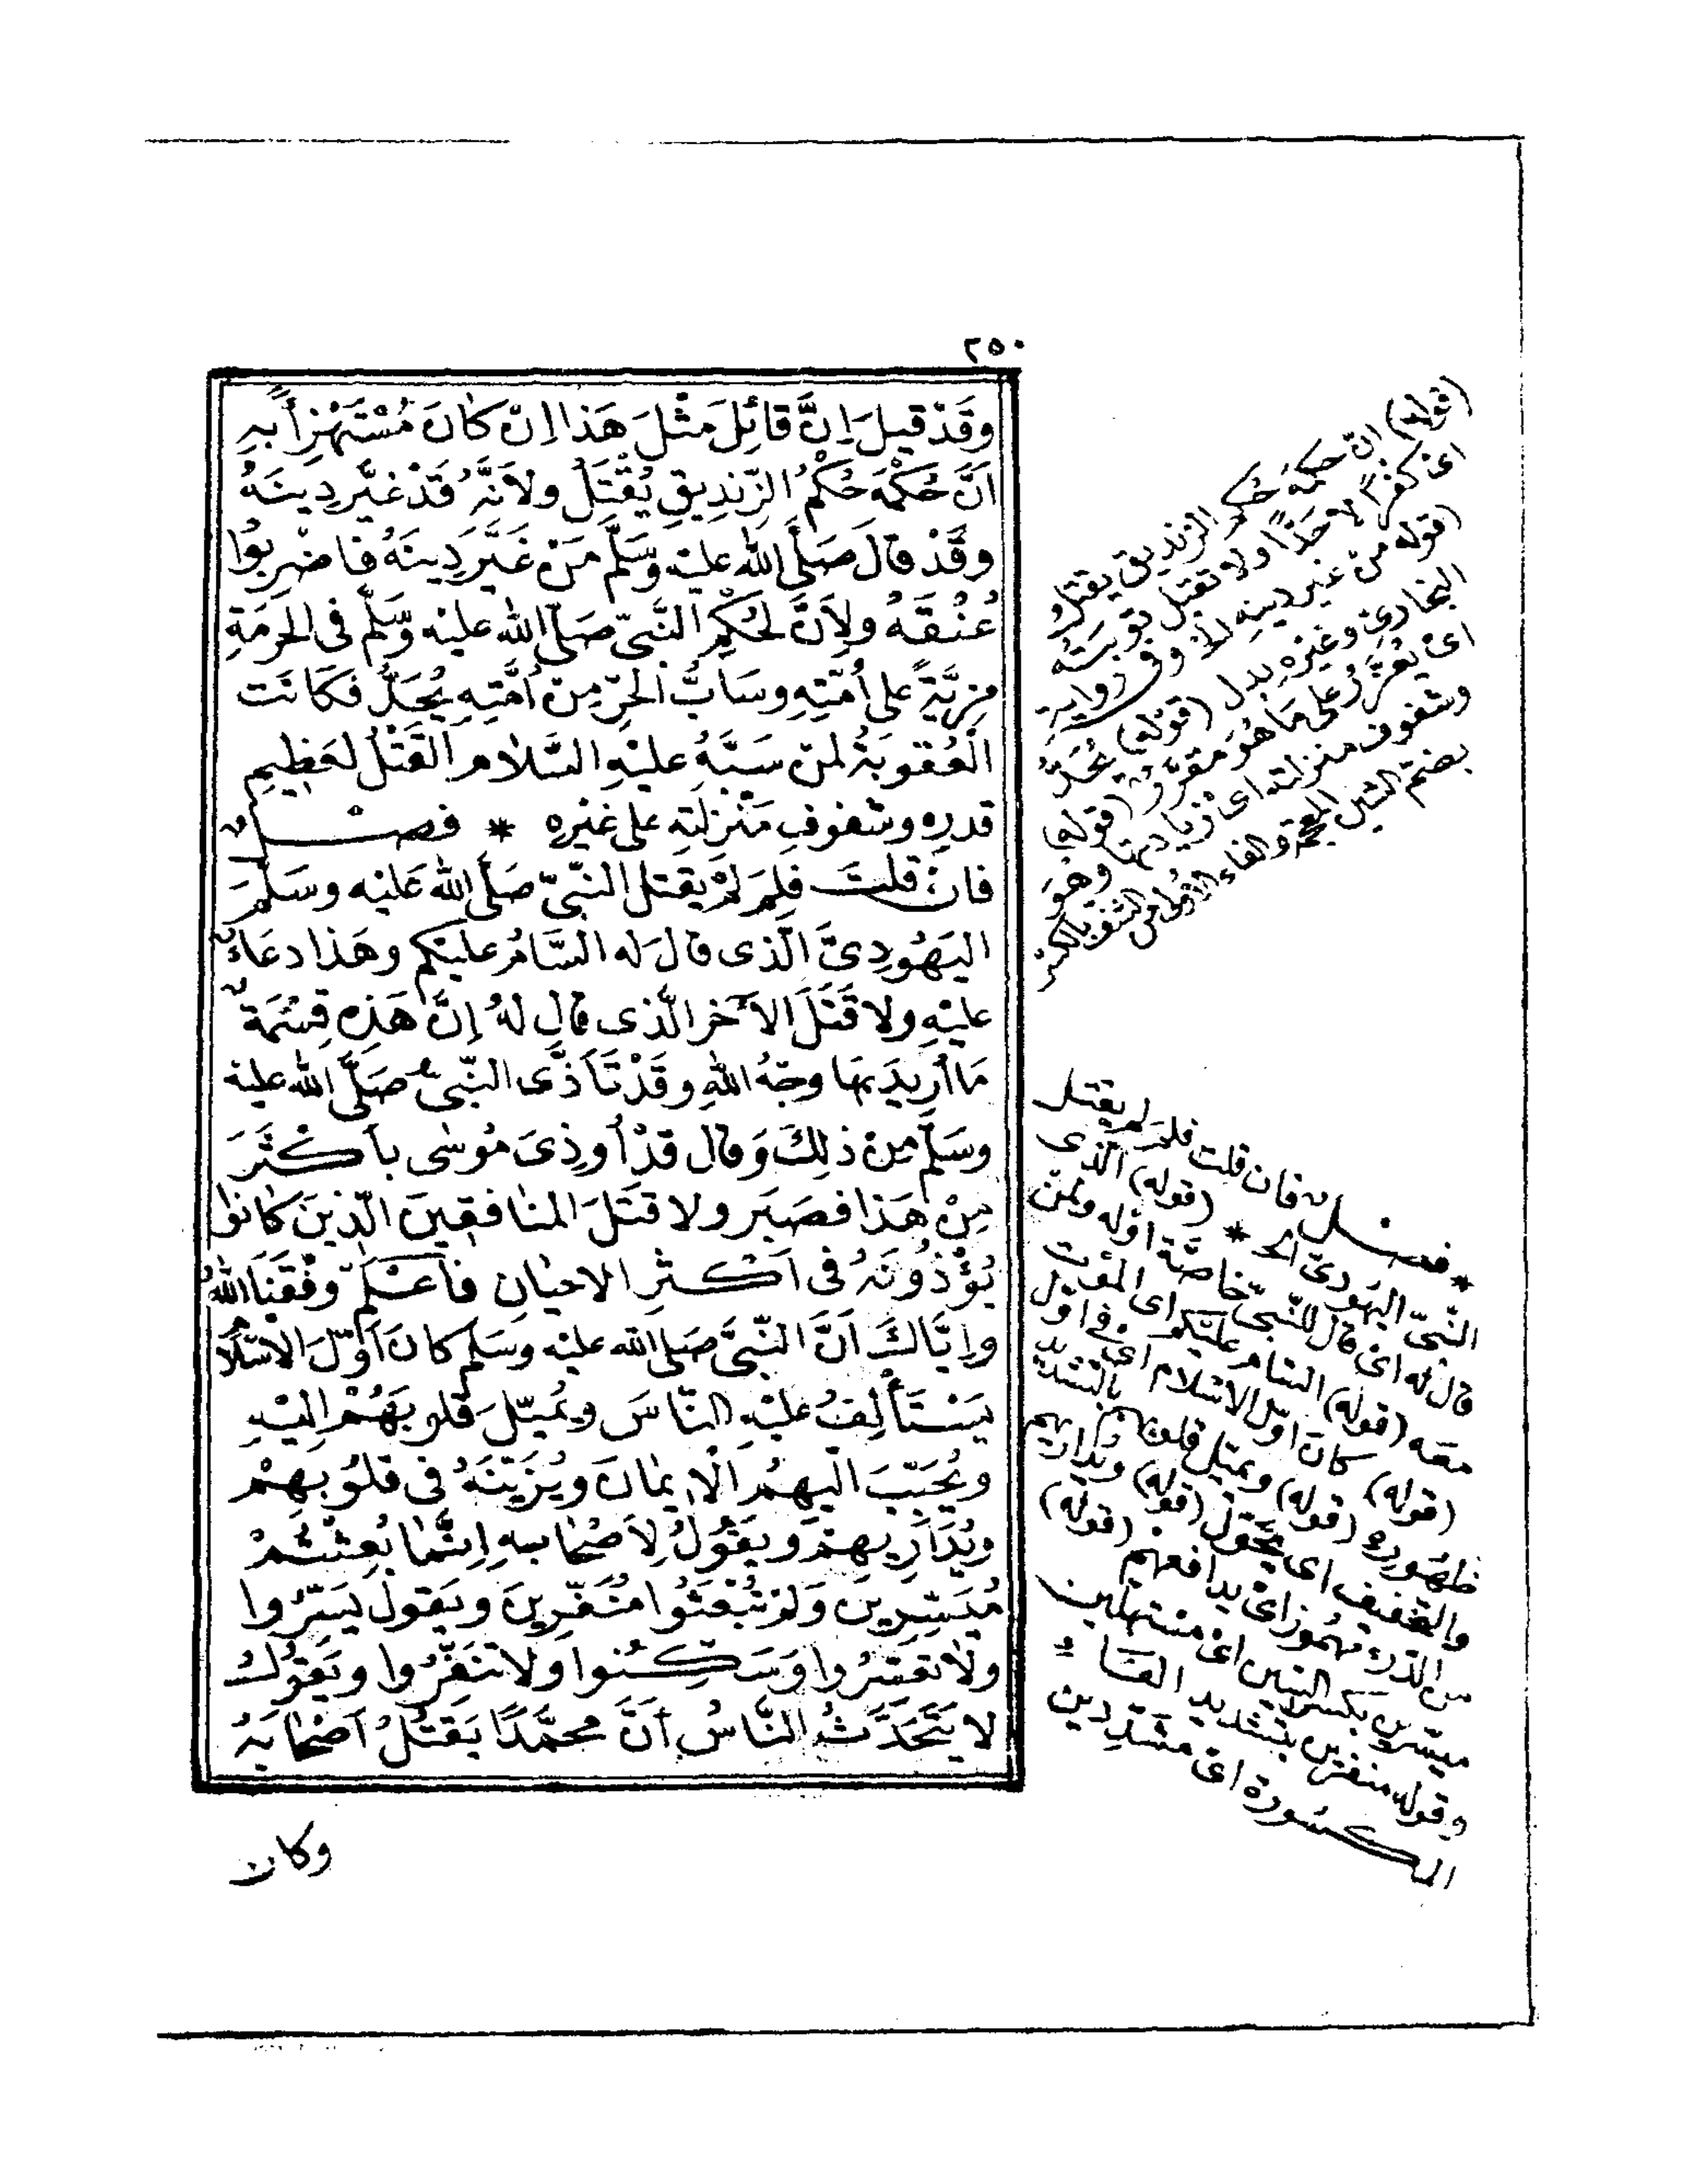 ٢٥٠
وَقَدْ قِيلَ اِنَّ قَائِلَ مَثْلَ هَذَا اِنْ كَانَ مُسْتَهْزِأً بِهِ
اَنَّ حُكْمَهُ حُكْمُ الزِّنْدِيقِ يُقْتَلُ وِلاَنَّهُ قَدْ غَيَّرَ دِينَهُ
وقَدْ قالَ صَلَّى الله عليْه وَسَلَّم مَنْ غَيَّرَ دِينَهُ فَاضْرِبُوا
عُنُقَهُ وِلاَنَّ لِحُكْمِ النَّبِىّ صَلَّى الله عليْه وسَلَّم فى الحُرْمَةِ
مزِيَّةً على اُمَّتِهِ وسَابُّ الحُرِّ مِنْ اُمَّتِهِ يُحَدُّ فَكَانَت
الْعُقوبَةُ لمنْ سَبَّهُ عليْهِ السَّلام القَتْلُ لعَظِيمِ
قدرِهِ وشفوفِ مَنْزِلتِهِ على غيْرِه * فصل
فانْ قلتَ فلِمَ لمْ يَقتل النّبىّ صَلَّى الله عَليْه وسَلمَ
اليَهُودِىَّ الَّذى قالَ لهُ السَّامُ عليْكم وهَذا دعَاءٌ
عليْهِ ولا قَتَلَ الآخرَ الّذى قالَ لهُ اِنَّ هَذِهِ قِسْمَةٌ
مَا اُرِيدَ بهَا وجْهُ اللّهِ وقَدْ تَأَذَّى النّبىُّ صَلَّى الله عليه
وسَلّم مِنْ ذلِكَ وَقال قدْ اُوذِىَ مُوسَى بأكْثَرَ
مِنْ هَذا فصَبَر ولا قتَلَ المنافقِينَ الّذِينَ كانوا
يُؤْذُونَهُ فى اَكْثَرِ الاحيَانِ فاعْلَمْ وفّقَنَا اللهُ
وايَّاكَ اَنَّ النّبىَّ صَلى الله عليْه وسَلم كانَ اَوَّلَ الاسْلام
يَسْتَأْلِفُ عليْهِ النَّاسَ ويُميّلُ قلوبَهُمْ اليْهِ
ويُحَبِّبَ اليهِمُ الْايمَانَ ويُزَيّنَهُ فى قلُوبِهِمْ
ويُدَارِيهِمْ ويَقُولُ لِاَصْحَابِهِ اِنَّمَا بُعِثْتُمْ
مُيَسِّرِينَ وَلمْ تُبْعَثُوا مُنَفِّرِينَ ويَقولُ يَسِّرُوا
ولا تعَسِّرُوا وَسَكِّنوا ولا تُنَفِّرُوا ويَقُولُ
لا يَتَحَدَّثُ النَّاسُ اَنَّ مُحمَّدًا يَقتُلُ اَصْحَابَهُ
وكان
(قوله) انّ حكمهُ حُكم الزنديق يقتلُ
اىْ كفرًا لا حَدًّا ولا تقبل توبتهُ
(قوله من غير دينهِ الخ وفى رواية
البخارى وغيره بدل (قوله) يُحَدُّ
اى يُعَزَّرُ على مَا هُوَ مقرَّر (قوله)
وشفوف منزلته اى زيادتها وهوَ
بضمّ الشين المعجمة والفاء الاولى من الشف بالكسْر
* فصل فان قلت فلمَ لم يقتل
النّبىّ اليهُودىّ الخ * (قوله) الّذى
قال له اى قال للنّبىّ خاصّة اوْله ولمن
معَه (قوله) السّام عليْكم اى الموْت
(قوله) كانَ اوّل الاسْلام اى فى اوّل
ظهُورِه (قوله) ويميّل قلوبهم بالتشْديد
والتخفيف اى يحَوّل (قوله) ويُداريهم
من الدرء مهْموز اى يدافعهم (قوله)
ميسّرين بكسر السّين اى مسَهّلين
وقوله منفرين بتشديد الفاء
المكسُورة اى مشدّدين